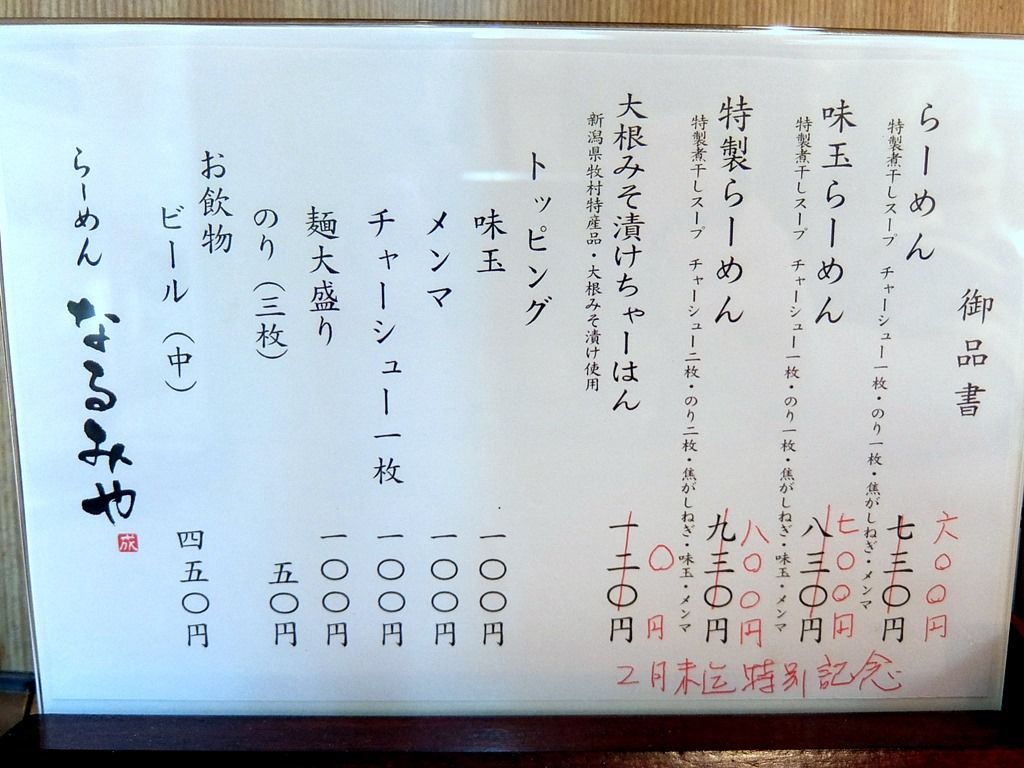 御品書
らーめん 七三〇円 六〇〇円
特製煮干しスープ チャーシュー一枚・のり一枚・焦がしねぎ・メンマ
味玉らーめん 八三〇円 七〇〇円
特製煮干しスープ チャーシュー一枚・のり一枚・焦がしねぎ・味玉・メンマ
特製らーめん 九三〇円 八〇〇円
特製煮干しスープ チャーシュー二枚・のり二枚・焦がしねぎ・味玉・メンマ
大根みそ漬けちゃーはん 〇円
新潟県牧村特産品・大根みそ漬け使用
2月末迄特別記念
トッピング
味玉 一〇〇円
メンマ 一〇〇円
チャーシュー一枚 一〇〇円
麺大盛り 一〇〇円
のり（三枚） 五〇円
お飲物
ビール（中） 四五〇円
らーめん なるみや
成